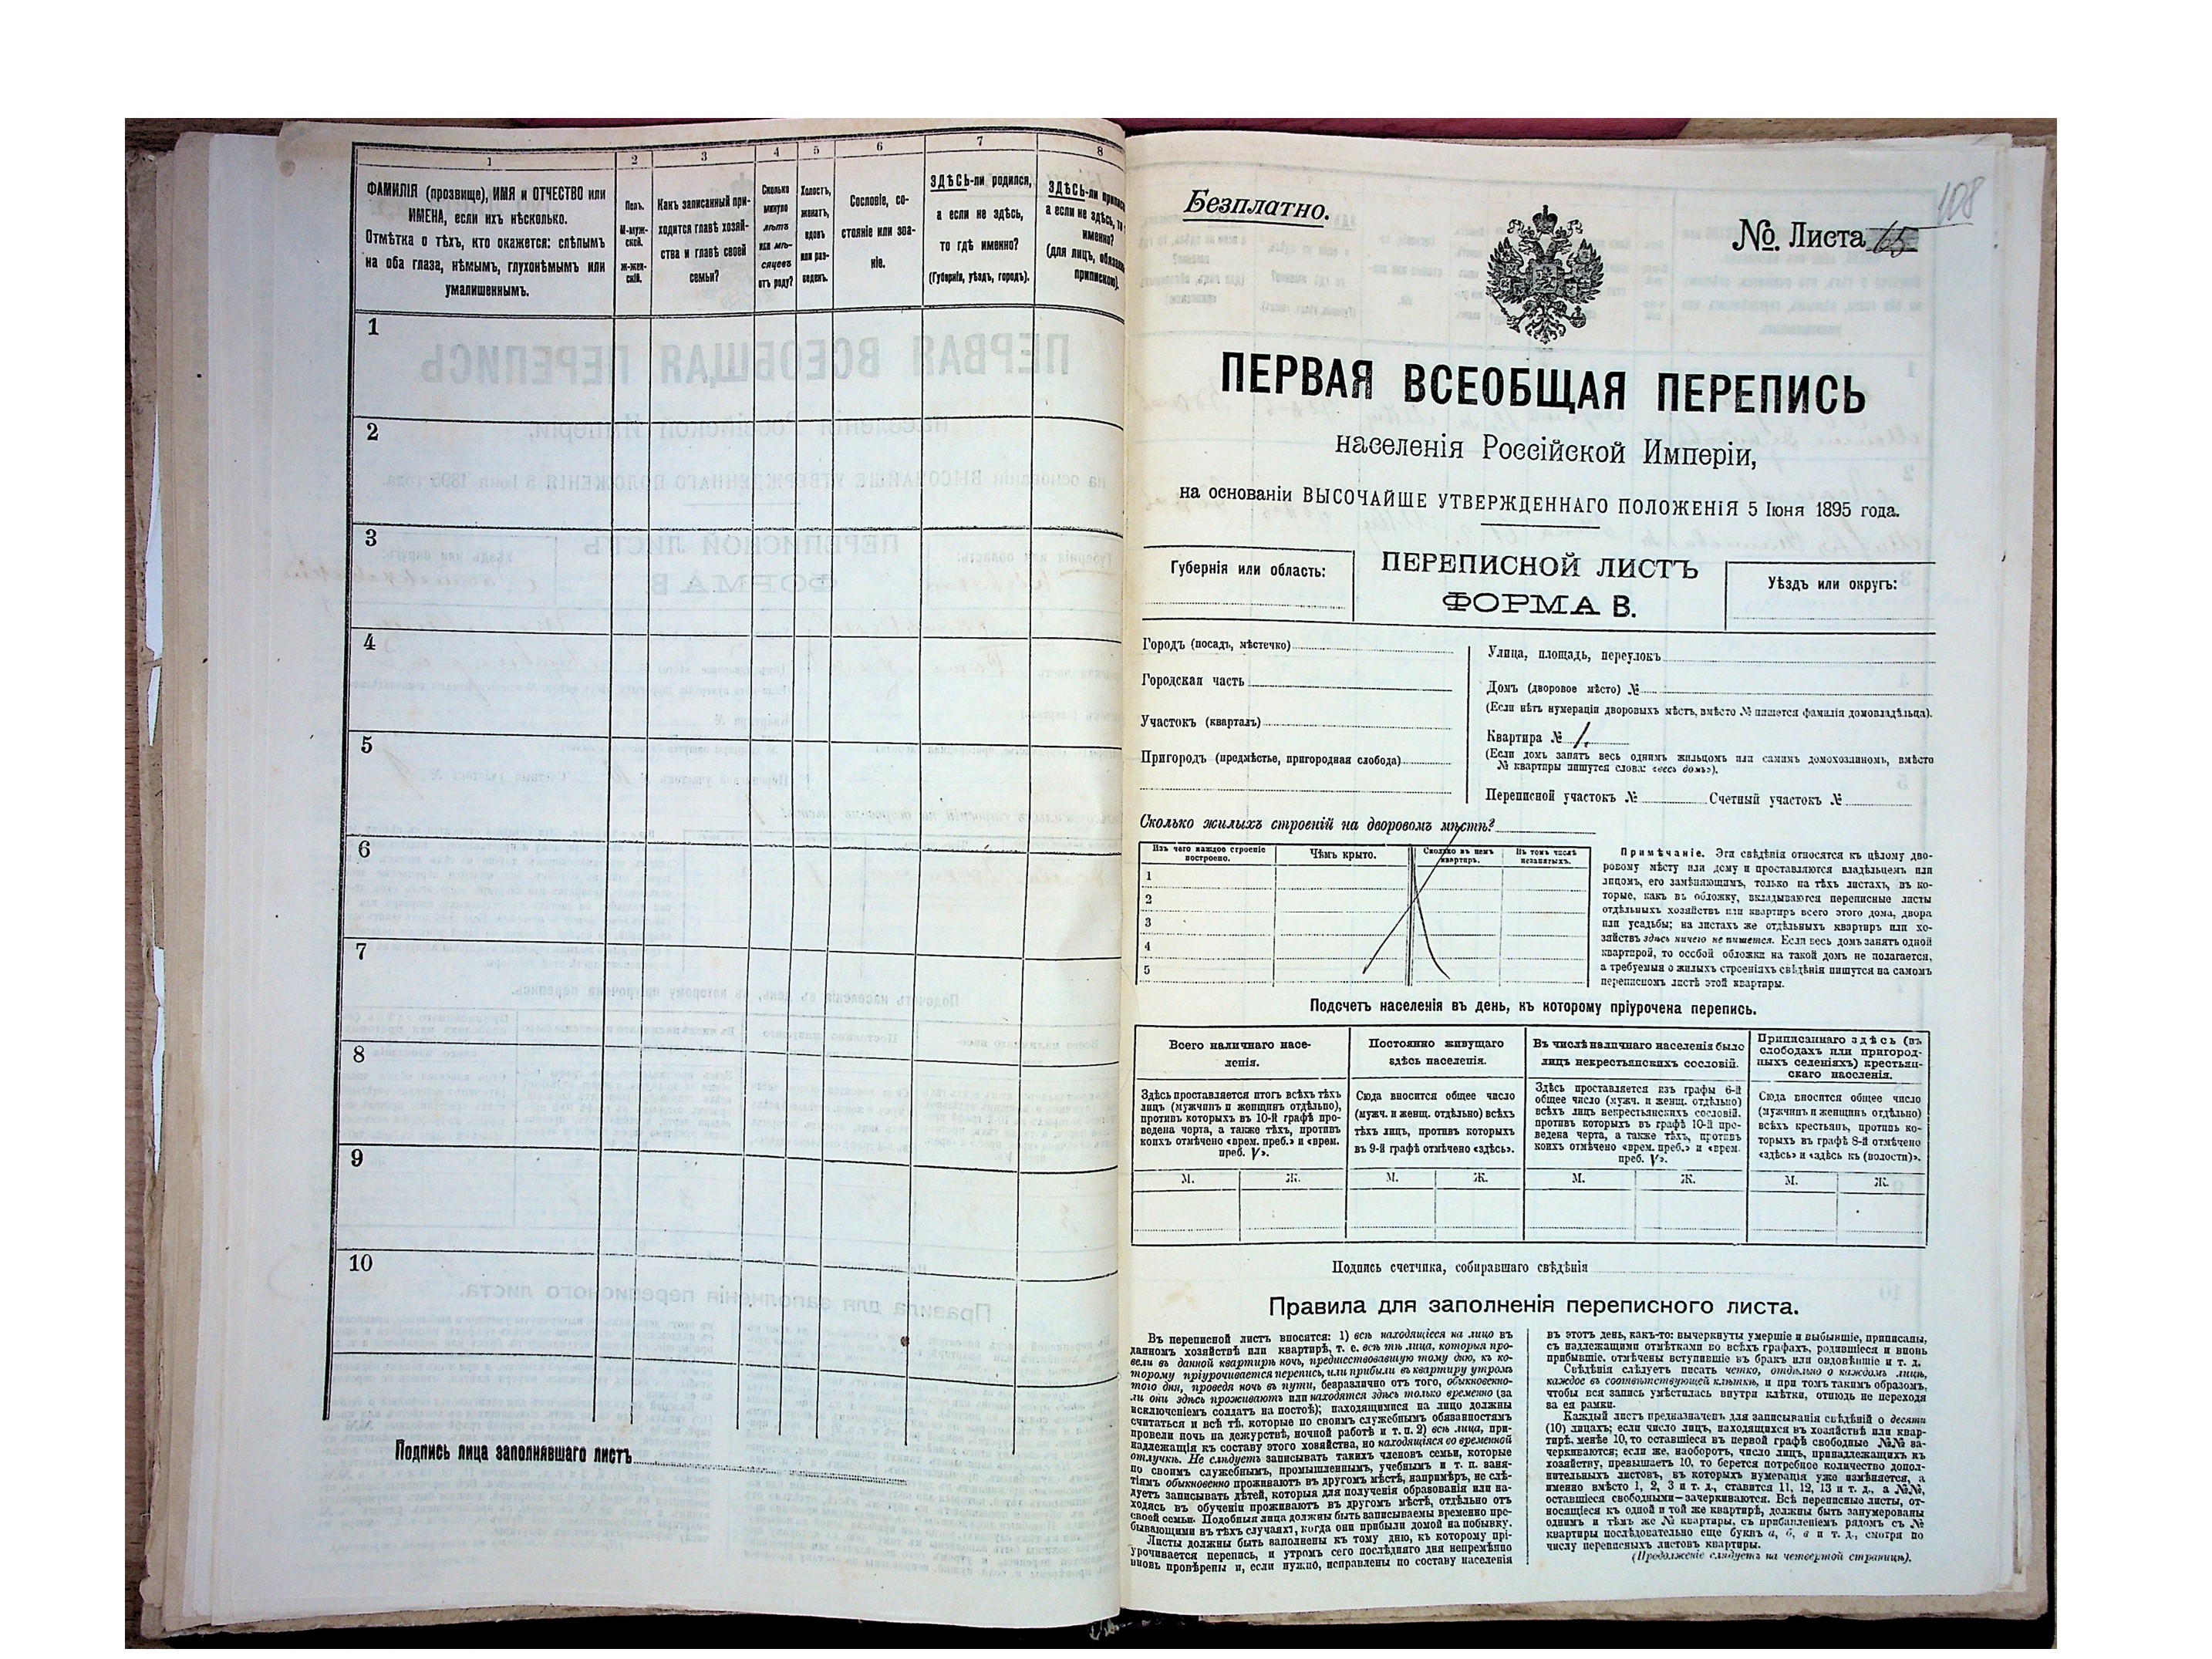 1 2 3 4 5 6 7 8
ФАМИЛІЯ (прозвище), ИМЯ и ОТЧЕСТВО или
ИМЕНА, если ихъ нѣсколько.
Отмѣтка о тѣхъ, кто окажется: слѣпымъ
на оба глаза, нѣмымъ, глухонѣмымъ или
умалишеннымъ.
Полъ.
М-муж-
ской.
Ж-жен-
скій.
Какъ записанный при-
ходится главѣ хозяй-
ства и главѣ своей
семьи?
Сколько
минуло
лѣтъ
или мѣ-
сяцевъ
отъ роду?
Холостъ,
женатъ,
вдовъ
или раз-
веденъ.
Сословіе, со-
стояніе или зва-
ніе.
ЗДѢСЬ-ли родился,
а если не здѣсь,
то гдѣ именно?
(Губернія, уѣздъ, городъ).
ЗДѢСЬ-ли
а если не здѣсь, то
именно?
(для лицъ,
припискою).
1
2
3
4
5
6
7
8
9
10
Подпись лица заполнявшаго листъ
108
Безплатно.
№ Листа 65
ПЕРВАЯ ВСЕОБЩАЯ ПЕРЕПИСЬ
населенія Россійской Имперіи,
на основаніи ВЫСОЧАЙШЕ УТВЕРЖДЕННАГО ПОЛОЖЕНІЯ 5 Іюня 1895 года.
Губернія или область:
ПЕРЕПИСНОЙ ЛИСТЪ
ФОРМА В.
Уѣздъ или округъ:
Городъ (посадъ, мѣстечко)
Городская часть
Участокъ (кварталъ)
Пригородъ (предмѣстье, пригородная слобода)
Улица, площадь, переулокъ
Домъ (дворовое мѣсто) №
(Если нѣтъ нумераціи дворовыхъ мѣстъ, вмѣсто № пишется фамилія домовладѣльца).
Квартира № 1.
(Если домъ занятъ весь однимъ жильцомъ или самимъ домохозяиномъ, вмѣсто
№ квартиры пишутся слова: «весь домъ»).
Переписной участокъ № Счетный участокъ №
Сколько жилыхъ строеній на дворовомъ мѣстѣ?
Изъ чего каждое строеніе
построено.
Чѣмъ крыто.
Сколько въ немъ
квартиръ.
Въ томъ числѣ
незанятыхъ.
1
2
3
4
5
Примѣчаніе. Эти свѣдѣнія относятся къ цѣлому дво-
ровому мѣсту или дому и проставляются владѣльцемъ или
лицомъ, его замѣняющимъ, только на тѣхъ листахъ, въ ко-
торые, какъ въ обложку, вкладываются переписные листы
отдѣльныхъ хозяйствъ или квартиръ всего этого дома, двора
или усадьбы; на листахъ же отдѣльныхъ квартиръ или хо-
зяйствъ здѣсь ничего не пишется. Если весь домъ занятъ одной
квартирой, то особой обложки на такой домъ не полагается,
а требуемыя о жилыхъ строеніяхъ свѣдѣнія пишутся на самомъ
переписномъ листѣ этой квартиры.
Подсчетъ населенія въ день, къ которому пріурочена перепись.
Всего наличнаго насе-
ленія.
Здѣсь проставляется итогъ всѣхъ тѣхъ
лицъ (мужчинъ и женщинъ отдѣльно),
противъ которыхъ въ 10-й графѣ про-
ведена черта, а также тѣхъ, противъ
коихъ отмѣчено «врем. преб.» и «врем.
преб. V».
Постоянно живущаго
здѣсь населенія.
Сюда вносится общее число
(мужч. и женщ. отдѣльно) всѣхъ
тѣхъ лицъ, противъ которыхъ
въ 9-й графѣ отмѣчено «здѣсь».
Въ числѣ наличнаго населенія было
лицъ некрестьянскихъ сословій.
Здѣсь проставляется изъ графы 6-й
общее число (мужч. и женщ. отдѣльно)
всѣхъ лицъ некрестьянскихъ сословій.
противъ которыхъ въ графѣ 10-й про-
ведена черта, а также тѣхъ, противъ
коихъ отмѣчено «врем. преб.» и «врем.
преб. V».
Приписаннаго здѣсь (въ
слободахъ или пригород-
ныхъ селеніяхъ) крестьян-
скаго населенія.
Сюда вносится общее число
(мужчинъ и женщинъ отдѣльно)
всѣхъ крестьянъ, противъ ко-
торыхъ въ графѣ 8-й отмѣчено
«здѣсь» и «здѣсь къ (волости)».
М. Ж. М. Ж. М. Ж. М. Ж.
Подпись счетчика, собиравшаго свѣдѣнія
Правила для заполненія переписного листа.
Въ переписной листъ вносятся: 1) всѣ находящіеся на лицо въ
данномъ хозяйствѣ или квартирѣ, т. е. всѣ тѣ лица, которыя про-
вели въ данной квартирѣ ночь, предшествовавшую тому дню, къ ко-
торому пріурочивается перепись, или прибыли въ квартиру утромъ
того дня, проведя ночь въ пути, безразлично отъ того, обыкновенно-
ли они здѣсь проживаютъ или находятся здѣсь только временно (за
исключеніемъ солдатъ на постоѣ); находящимися на лицо должны
считаться и всѣ тѣ, которые по своимъ служебнымъ обязанностямъ
провели ночь на дежурствѣ, ночной работѣ и т. п. 2) всѣ лица, при-
надлежащія къ составу этого хозяйства, но находящіяся во временной
отлучкѣ. Не слѣдуетъ записывать такихъ членовъ семьи, которые
по своимъ служебнымъ, промышленнымъ, учебнымъ и т. п. заня-
тіямъ обыкновенно проживаютъ въ другомъ мѣстѣ, напримѣръ, не слѣ-
дуетъ записывать дѣтей, которыя для полученія образованія или на-
ходясь въ обученіи проживаютъ въ другомъ мѣстѣ, отдѣльно отъ
своей семьи. Подобныя лица должны быть записываемы временно пре-
бывающими въ тѣхъ случаяхъ, когда они прибыли домой на побывку.
Листы должны быть заполнены къ тому дню, къ которому прі-
урочивается перепись, и утромъ сего послѣдняго дня непремѣнно
вновь провѣрены и, если нужно, исправлены по составу населенія
въ этотъ день, какъ-то: вычеркнуты умершіе и выбывшіе, приписаны,
съ надлежащими отмѣтками во всѣхъ графахъ, родившіеся и вновь
прибывшіе, отмѣчены вступившіе въ бракъ или овдовѣвшіе и т. д.
Свѣдѣнія слѣдуетъ писать четко, отдѣльно о каждомъ лицѣ,
каждое въ соотвѣтствующей клѣткѣ, и при томъ такимъ образомъ,
чтобы вся запись умѣстилась внутри клѣтки, отнюдь не переходя
за ея рамки.
Каждый листъ предназначенъ для записыванія свѣдѣній о десяти
(10) лицахъ; если число лицъ, находящихся въ хозяйствѣ или квар-
тирѣ, менѣе 10, то оставшіеся въ первой графѣ свободные №№ за-
черкиваются; если же, наоборотъ, число лицъ, принадлежащихъ къ
хозяйству, превышаетъ 10, то берется потребное количество допол-
нительныхъ листовъ, въ которыхъ нумерація уже измѣняется, а
именно вмѣсто 1, 2, 3 и т. д., ставится 11, 12, 13 и т. д., а №№,
оставшіеся свободными—зачеркиваются. Всѣ переписные листы, от-
носящіеся къ одной и той же квартирѣ, должны быть занумерованы
однимъ и тѣмъ же № квартиры, съ прибавленіемъ рядомъ съ №
квартиры послѣдовательно еще буквъ а, б, в и т. д., смотря по
числу переписныхъ листовъ квартиры.
(Продолженіе слѣдуетъ на четвертой страницѣ).